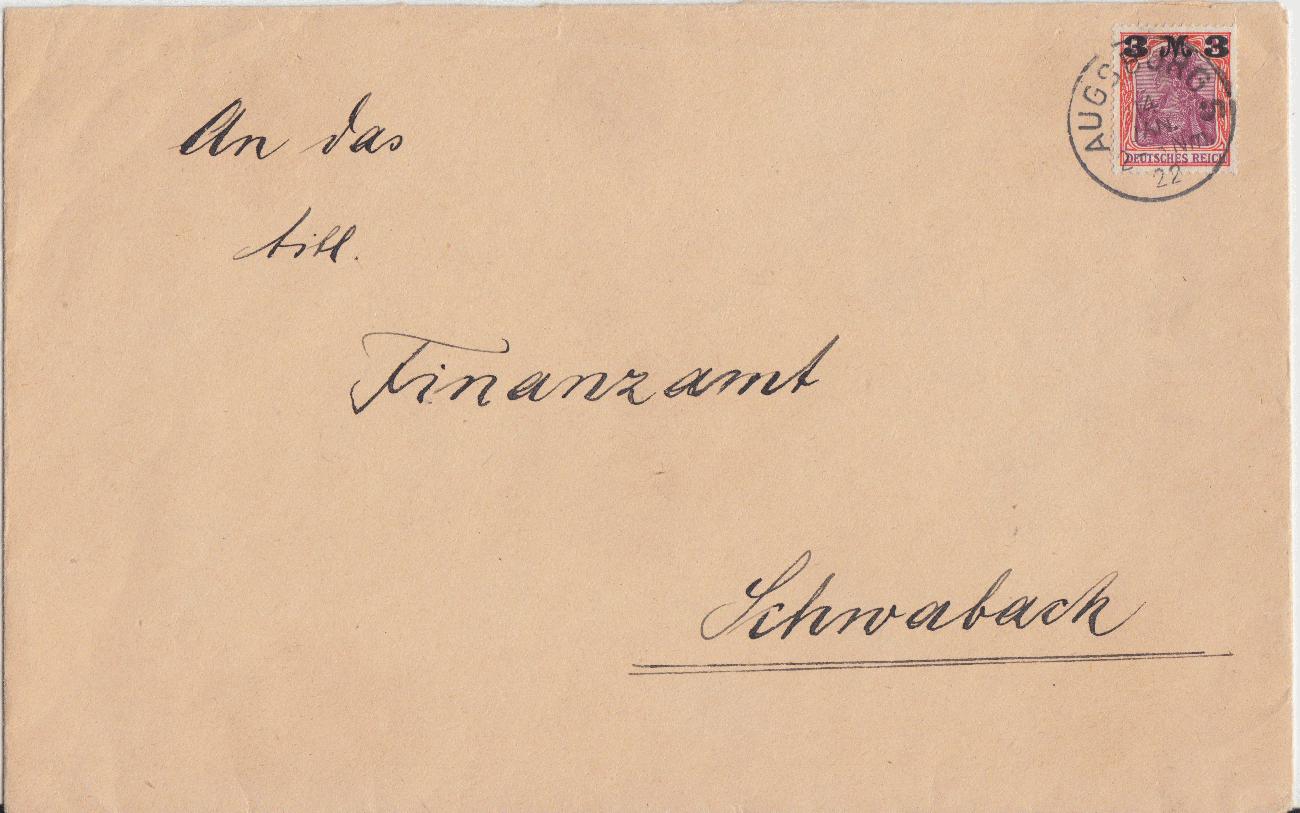 An das
titl.
Finanzamt
Schwabach
3 M 3
DEUTSCHES REICH
AUGSBURG 5
JAN.
22